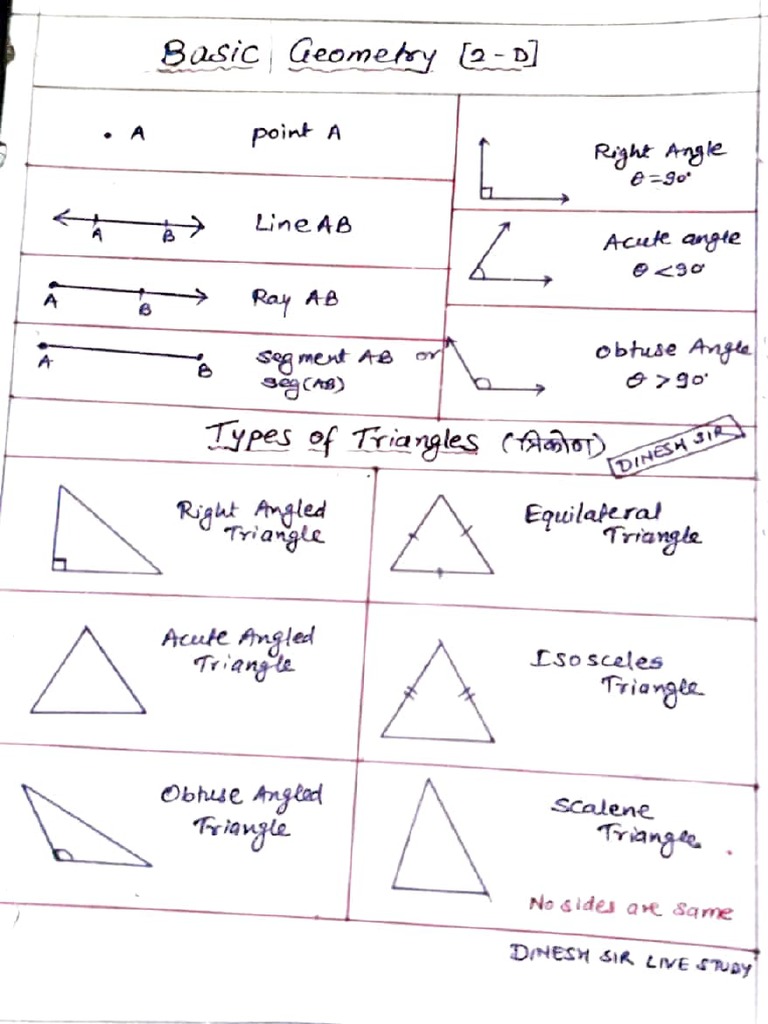 Basic Geometry [2-D]
• A point A
A B Line AB
A B Ray AB
A B Segment AB or
seg(AB)
Right Angle
θ=90°
Acute angle
θ<90°
Obtuse Angle
θ>90°
Types of Triangles (त्रिकोण)
DINESH SIR
Right Angled
Triangle
Equilateral
Triangle
Acute Angled
Triangle
Isosceles
Triangle
Obtuse Angled
Triangle
Scalene
Triangle
No sides are same
DINESH SIR LIVE STUDY